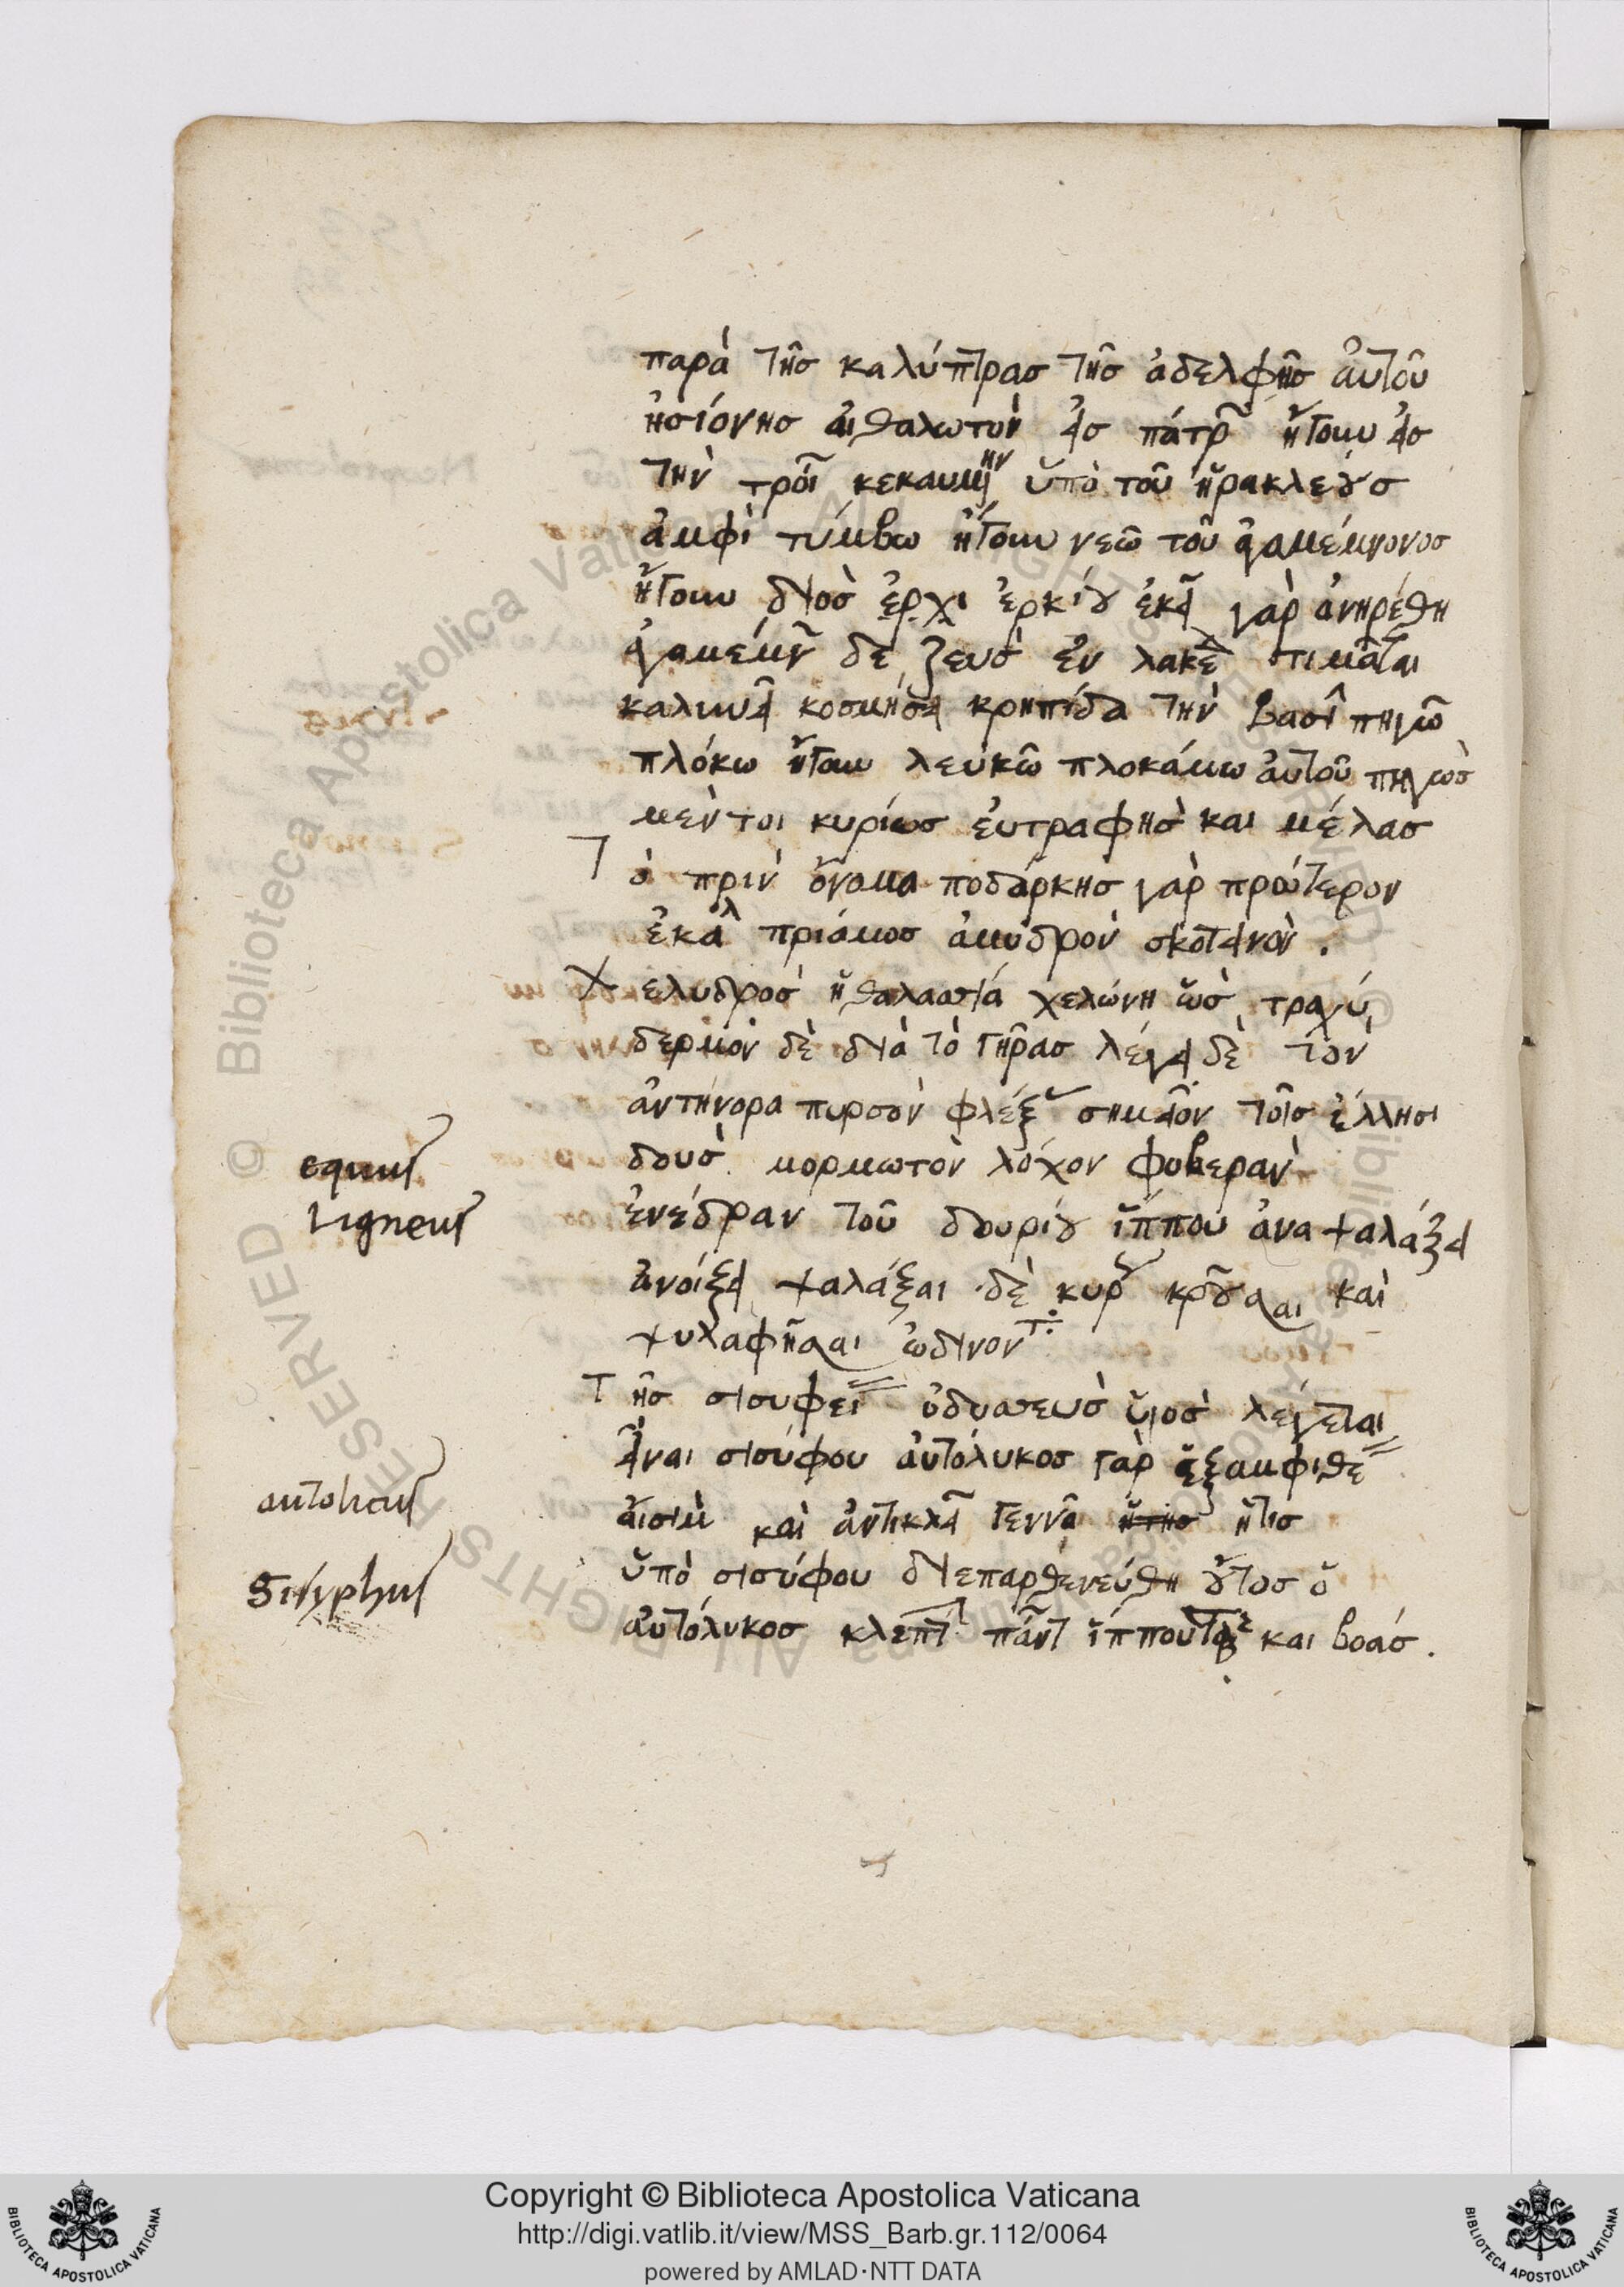 παρὰ τῆσ καλύπτρασ τῆσ ἀδελφῆσ αὐτοῦ
ἡσιόνησ αἰθαλωτὸν εἰσ πάτρ ἤτοιυ εἰσ
τὴν τροί κεκαυμ ην ὑπὸ τοῦ ἡρακλέουσ
ἀμφὶ τύμβω ἤτοιυ νεῶ τοῦ ἀγαμέμνονοσ
ἤτοιυ διοσ ἐρχι ἑρκίου ἐκεῖ γὰρ ἀνηρέθη
ἀγαμέμν δε ζευσ ἐν λακε τιμᾶται
κοσμήσει κρηπίδα τὴν βασι πηγῶ
πλόκω ἤτοιυ λευκῶ πλοκάμω αὐτοῦ πηγὼσ
μέντοι κυρίωσ εὐτραφησ και μέλασ
Τ ὁ πριν ὄνομα ποδάρκησ γὰρ πρώτερον
ἐκαλ πρίαμοσ ἀμυδρὸν σκοτεινὸν .
Χ ελυδροσ ἡ θαλασσία χελώνη ὡσ τραχύ
δερμον δὲ διὰ τὸ γῆρασ λέγει δὲ τὸν
ἀντήνορα πυρσον φλέξ σημεῖον τοῖσ ἕλλησι
δουσ μορμωτὸν λόχον φοβερὰν
ἐνέδραν τοῦ δουρίου ἵππου ἀναψαλάξει
ἀνοίξει ψαλάξαι δὲ κυρ κρούσαι καὶ
ψυλαφῆσαι ὠδινοντ:
Τ ῆσ σισυφεί ὀδυσσευσ υἱοσ λέγεται
εἶναι σισύφου αὐτόλυκοσ γαρ ἐξαμφιθε
αἴσιμ καὶ ἀντικλεί γεννᾶ ἥτισ
equus
Ligneus
ὑπὸ σισύφου διεπαρθενεύθη οὗτοσ ὁ
αὐτόλυκοσ κλεπτ πάντ ἵππουσ και βοάσ .
autolicus
Sisyphus
Copyright © Biblioteca Apostolica Vaticana
http://digi.vatlib.it/view/MSS_Barb.gr.112/0064
powered by AMLAD·NTT DATA
BIBLIOTECA APOSTOLICA VATICANA
BIBLIOTECA APOSTOLICA VATICANA